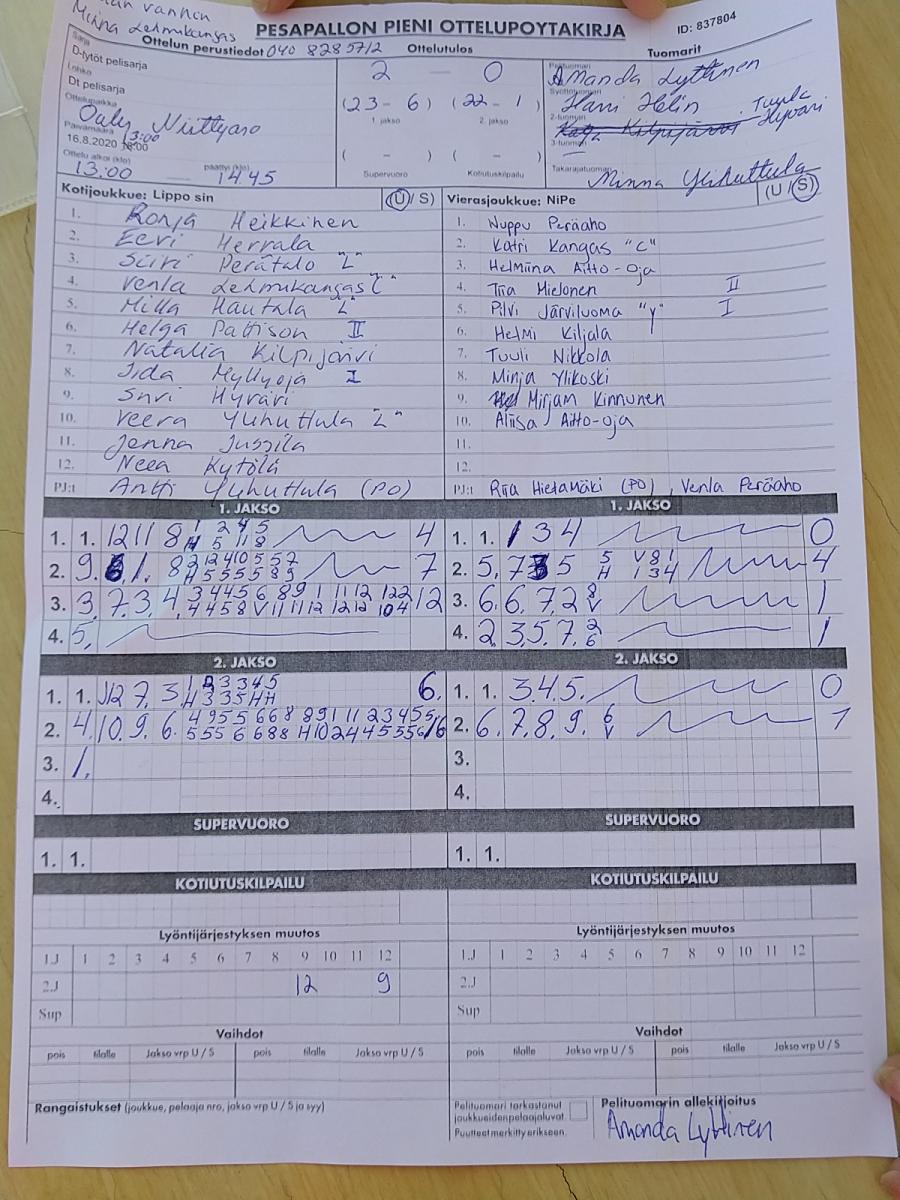 Minna Lehmikangas
PESÄPALLON PIENI OTTELUPÖYTÄKIRJA
ID: 837804
Ottelun perustiedot 040 828 5712
Ottelutulos
Tuomarit
Sarja
D-tytöt pelisarja
Lohko
Dt pelisarja
Ottelupaikka
Oulu Niittyaro
Päivämäärä 13:00
16.8.2020 18:00
Ottelu alkoi (klo) päättyi (klo)
13:00 14.45
2 – 0
(23 – 6) (22 – 1)
1. jakso 2. jakso
( – ) ( – )
Supervuoro Kotiutuskilpailu
Pelituomari
Amanda Lyttinen
Syöttötuomari
Harri Helin
2-tuomari
Tuula Hyväri
3-tuomari
Takarajatuomari
Minna Yluhuttula
Kotijoukkue: Lippo sin (U / S)
1. Ronja Heikkinen
2. Eevi Herrala
3. Siiri Perätalo "L"
4. Venla Lehmikangas "C"
5. Milla Hautala "L"
6. Helga Pattison II
7. Natalia Kilpijärvi
8. Iida Myllyoja I
9. Suvi Hyväri
10. Veera Yluhuttula "L"
11. Jenna Jussila
12. Neea Kytölä
PJ:t Antti Yluhuttula (PO)
Vierasjoukkue: NiPe (U / S)
1. Nuppu Peräaho
2. Katri Kangas "C"
3. Helmiina Aitto-oja
4. Tiia Mielonen II
5. Pilvi Järviluoma "Y" I
6. Helmi Kiljala
7. Tuuli Nikkola
8. Minja Ylikoski
9. Mirjam Kinnunen
10. Aliisa Aitto-oja
11.
12.
PJ:t Riia Hietamäki (PO), Venla Peräaho
1. JAKSO
1. 1. 12 11 8 4
2. 9. 1. 8 7
3. 3. 7. 3. 4. 12
4. 5.
1. JAKSO
1. 1. 3 4 0
2. 5. 7 5 4
3. 6. 6. 7. 2 1
4. 2. 3. 5. 7. 1
2. JAKSO
1. 1. 12 7. 3. 6.
2. 4. 10. 9. 6. 16
3. 1.
4.
2. JAKSO
1. 1. 3. 4. 5. 0
2. 6. 7. 8. 9. 1
3.
4.
SUPERVUORO
1. 1.
SUPERVUORO
1. 1.
KOTIUTUSKILPAILU
KOTIUTUSKILPAILU
Lyöntijärjestyksen muutos
1.J 1 2 3 4 5 6 7 8 9 10 11 12
2.J 12 9
Sup
Lyöntijärjestyksen muutos
1.J 1 2 3 4 5 6 7 8 9 10 11 12
2.J
Sup
Vaihdot
pois tilalle Jakso vrp U / S pois tilalle Jakso vrp U / S
Vaihdot
pois tilalle Jakso vrp U / S pois tilalle Jakso vrp U / S
Rangaistukset (joukkue, pelaaja nro, jakso vrp U / S ja syy)
Pelituomari tarkastanut
joukkueiden pelaajaluvat.
Puutteet merkitty erikseen.
Pelituomarin allekirjoitus
Amanda Lyttinen